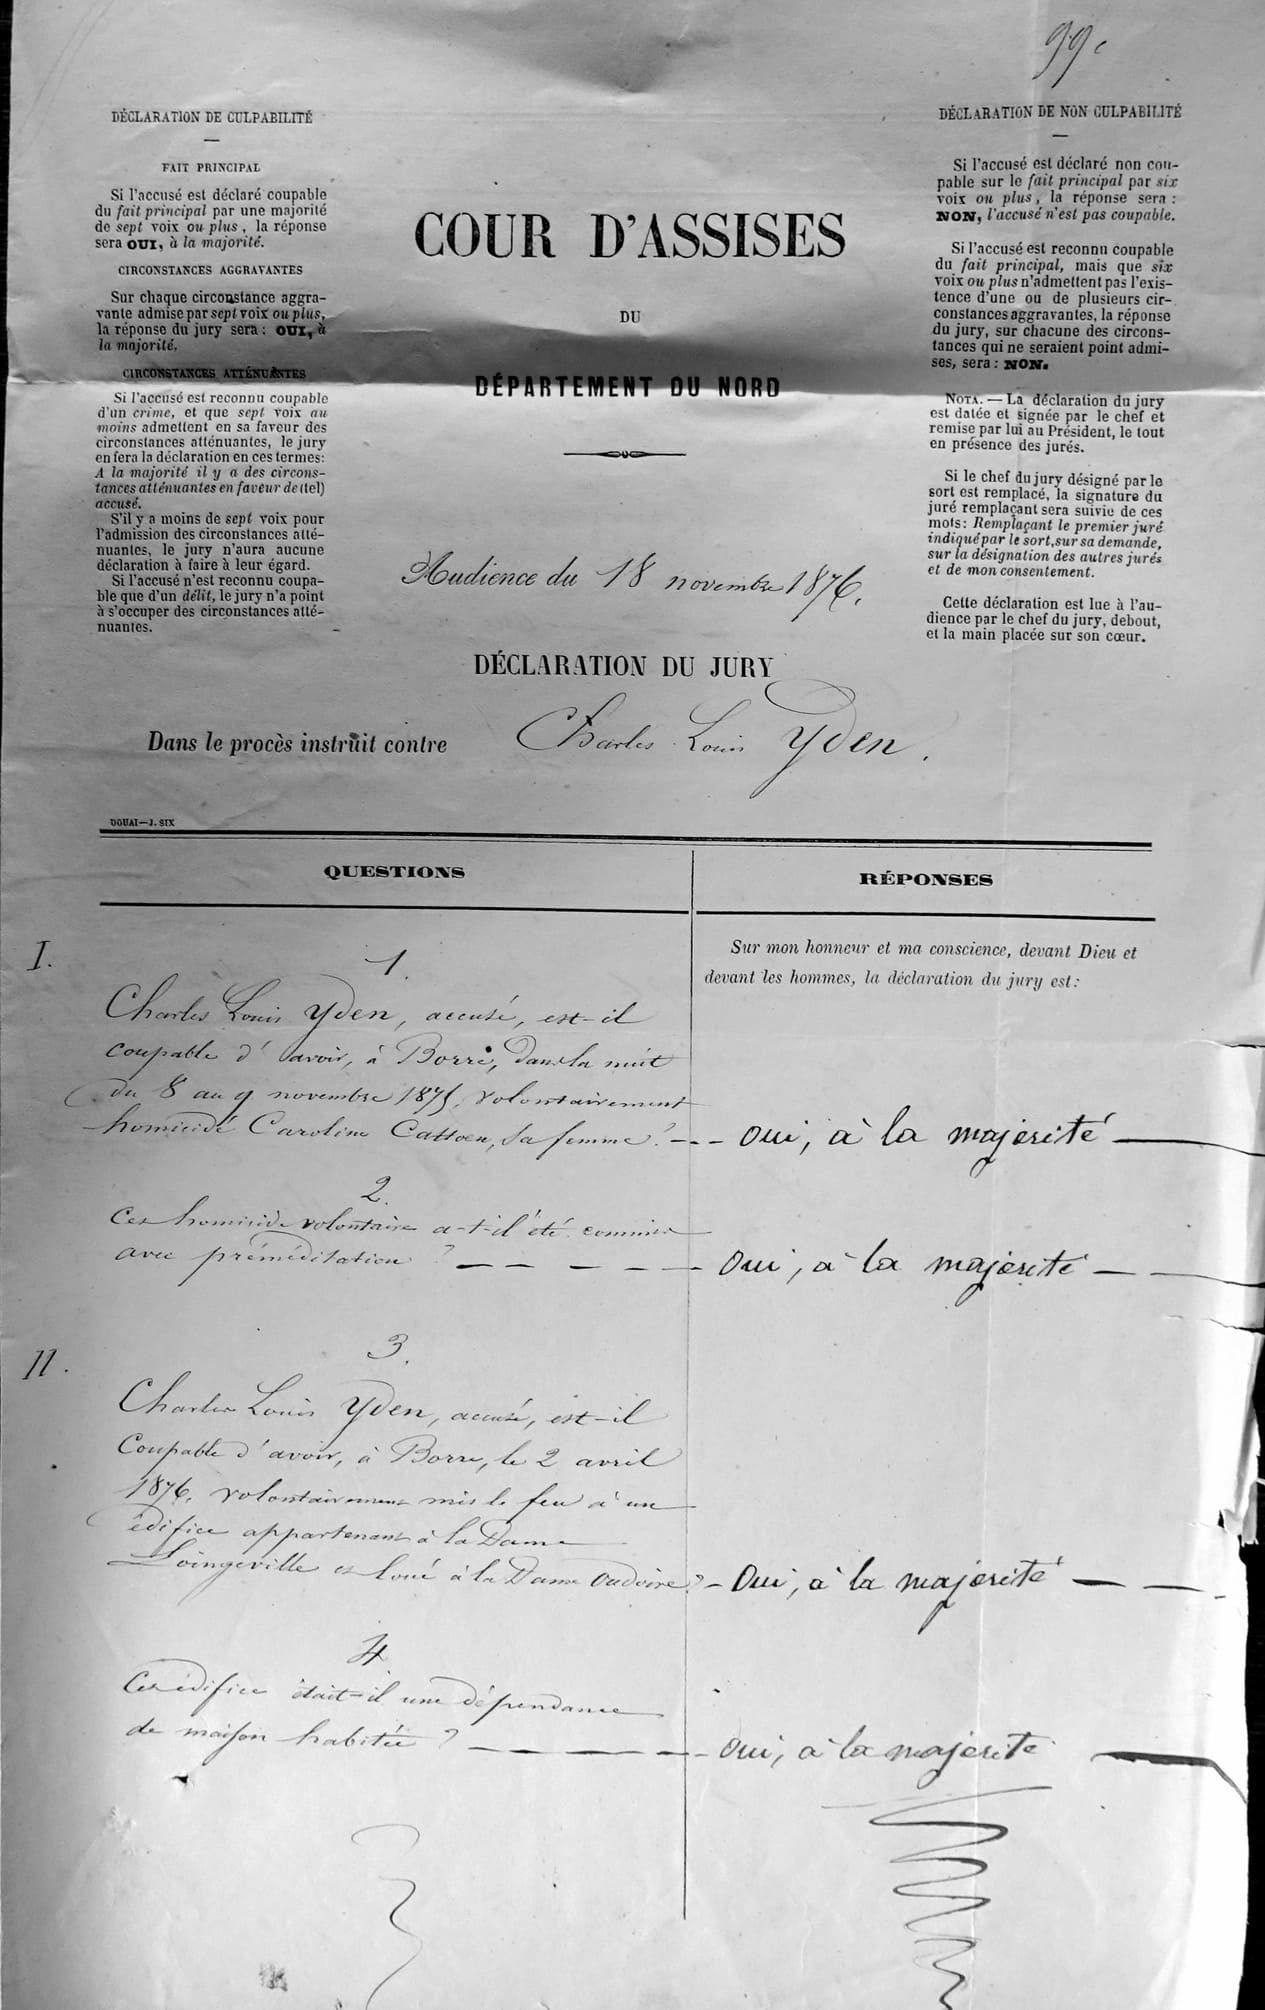 99
DÉCLARATION DE CULPABILITÉ
FAIT PRINCIPAL
Si l'accusé est déclaré coupable
du fait principal par une majorité
de sept voix ou plus, la réponse
sera OUI, à la majorité.
CIRCONSTANCES AGGRAVANTES
Sur chaque circonstance aggra-
vante admise par sept voix ou plus,
la réponse du jury sera : OUI, à
la majorité.
CIRCONSTANCES ATTÉNUANTES
Si l'accusé est reconnu coupable
d'un crime, et que sept voix au
moins admettent en sa faveur des
circonstances atténuantes, le jury
en fera la déclaration en ces termes:
A la majorité il y a des circons-
tances atténuantes en faveur de (tel)
accusé.
S'il y a moins de sept voix pour
l'admission des circonstances atté-
nuantes, le jury n'aura aucune
déclaration à faire à leur égard.
Si l'accusé n'est reconnu coupa-
ble que d'un délit, le jury n'a point
à s'occuper des circonstances atté-
nuantes.
COUR D'ASSISES
DU
DÉPARTEMENT DU NORD
Audience du 18 novembre 1876.
DÉCLARATION DU JURY
Dans le procès instruit contre Charles Louis Yden.
DÉCLARATION DE NON CULPABILITÉ
Si l'accusé est déclaré non cou-
pable sur le fait principal par six
voix ou plus, la réponse sera :
NON, l'accusé n'est pas coupable.
Si l'accusé est reconnu coupable
du fait principal, mais que six
voix ou plus n'admettent pas l'exis-
tence d'une ou de plusieurs cir-
constances aggravantes, la réponse
du jury, sur chacune des circons-
tances qui ne seraient point admi-
ses, sera : NON.
NOTA. — La déclaration du jury
est datée et signée par le chef et
remise par lui au Président, le tout
en présence des jurés.
Si le chef du jury désigné par le
sort est remplacé, la signature du
juré remplaçant sera suivie de ces
mots: Remplaçant le premier juré
indiqué par le sort, sur sa demande,
sur la désignation des autres jurés
et de mon consentement.
Cette déclaration est lue à l'au-
dience par le chef du jury, debout,
et la main placée sur son cœur.
DOUAI—J. SIX
QUESTIONS
RÉPONSES
Sur mon honneur et ma conscience, devant Dieu et
devant les hommes, la déclaration du jury est :
I.
1.
Charles Louis Yden, accusé, est-il
coupable d'avoir, à Borre, dans la nuit
du 8 au 9 novembre 1875, volontairement
homicidé Caroline Cattoen, sa femme? - - oui, à la majorité
2.
Cet homicide volontaire a-t-il été commis
avec préméditation? — — — — — oui, à la majorité —
II.
3.
Charles Louis Yden, accusé, est-il
coupable d'avoir, à Borre, le 2 avril
1876, volontairement mis le feu à un
édifice appartenant à la Dame
et loué à la Dame ? - oui, à la majorité — —
4
Cet édifice était-il une dépendance
de maison habitée? — — — — - oui, à la majorité —